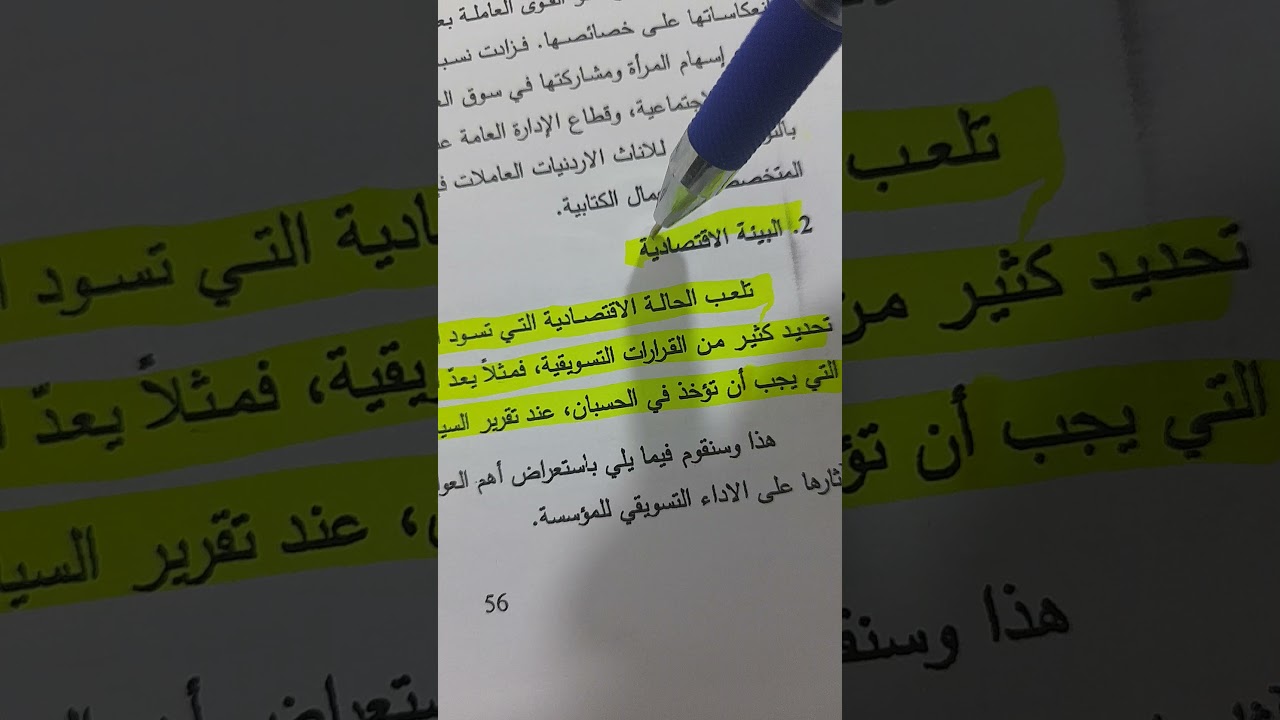 القوى العاملة
انعكاساتها على خصائصها. فزادت
إسهام المرأة ومشاركتها في سوق
وقطاع الإدارة العامة
للاناث الاردنيات العاملات
الكتابية.
2. البيئة الاقتصادية
تلعب الحالة الاقتصادية التي تسود
تحديد كثير من القرارات التسويقية، فمثلاً يعدّ
التي يجب أن تؤخذ في الحسبان، عند تقرير
هذا وسنقوم فيما يلي باستعراض أهم
على الاداء التسويقي للمؤسسة.
56